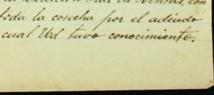 con
toda la cosecha por el adeudo
cual Ud tuvo conocimiento.